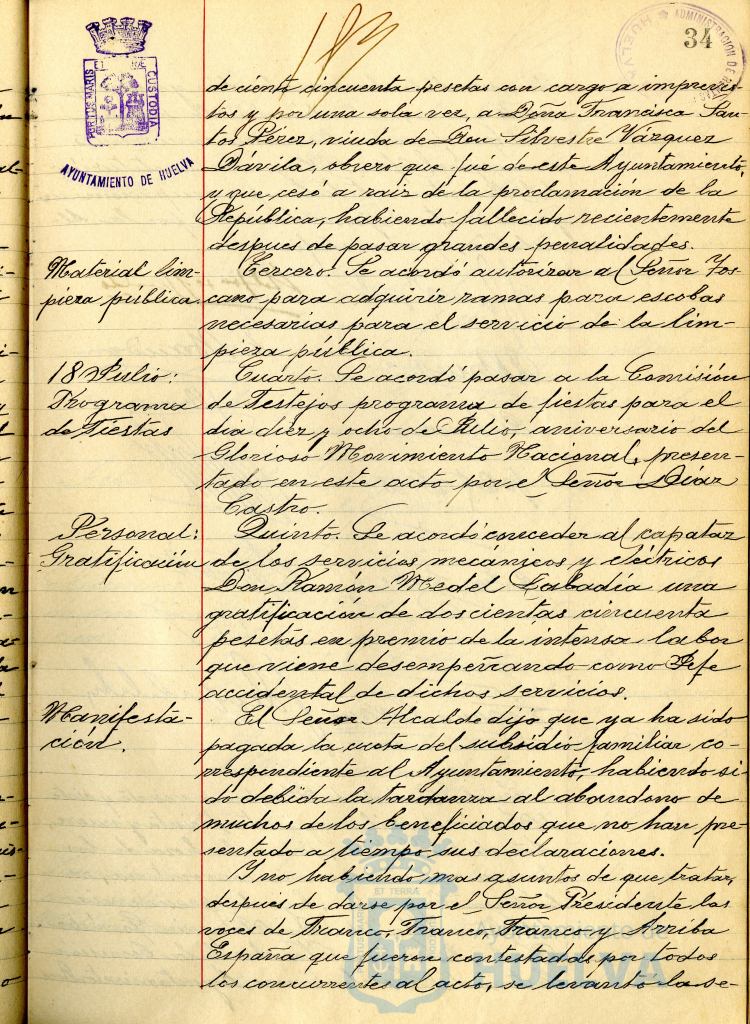 34
ADMINISTRACION DE
HUELVA
PORTUS MARIS
CUSTODIA
AYUNTAMIENTO DE HUELVA
de ciento cincuenta pesetas con cargo a imprevis-
tos y por una sola vez, a Doña Francisca San-
tos Pérez, viuda de Don Silvestre Vázquez
Dávila, obrero que fué de este Ayuntamiento,
y que cesó a raiz de la proclamación de la
República, habiendo fallecido recientemente
despues de pasar grandes penalidades.
Material lim-
pieza pública
Tercero. Se acordó autorizar al Señor Tos-
cano para adquirir ramas para escobas
necesarias para el servicio de la lim-
pieza pública.
18 Julio:
Programa
de Fiestas
Cuarto. Se acordó pasar a la Comisión
de Festejos programa de fiestas para el
dia diez y ocho de Julio, aniversario del
Glorioso Movimiento Nacional, presen-
tado en este acto por el Señor Díaz
Castro.
Personal:
Gratificación
Quinto. Se acordó conceder al capataz
de los servicios mecánicos y eléctricos
Don Ramón Medel Labadía una
gratificación de doscientas cincuenta
pesetas en premio de la intensa labor
que viene desempeñando como Jefe
accidental de dichos servicios.
Manifesta-
ción.
El Señor Alcalde dijo que ya ha sido
pagada la cuota del subsidio familiar co-
rrespondiente al Ayuntamiento, habiendo si-
do debida la tardanza al abandono de
muchos de los beneficiados que no han pre-
sentado a tiempo sus declaraciones.
Y no habiendo mas asuntos de que tratar,
despues de darse por el Señor Presidente las
voces de Franco, Franco, Franco y Arriba
España que fueron contestadas por todos
los concurrentes al acto, se levantó la se-
ET TERRA
Ayuntamiento de
HUELVA